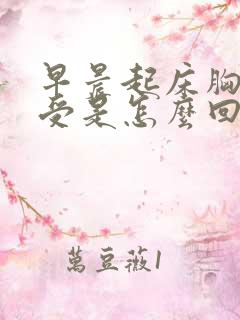 早晨起床胸
受是怎麼回
萬豆薇1